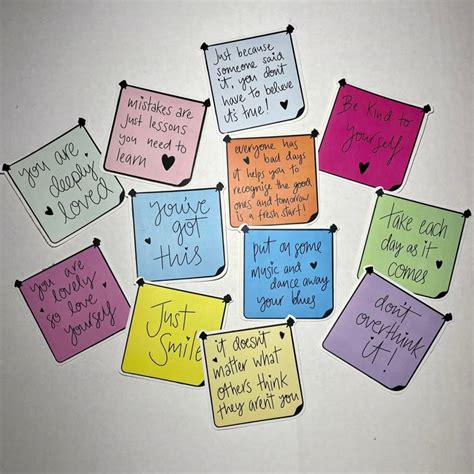 Just because
someone said
it, you don't
have to believe
it's true!
mistakes are
just lessons
you need to
learn
Be kind to
yourself
you are
deeply
loved
everyone has
bad days
it helps you to
recognise the good
ones and tomorrow
is a fresh start!
you've
got
this
take each
day as it
comes
put on some
music and
dance away
your blues
you are
lovely
so love
yourself
Just
Smile
don't
overthink
it!
it doesn't
matter what
others think
they arent you